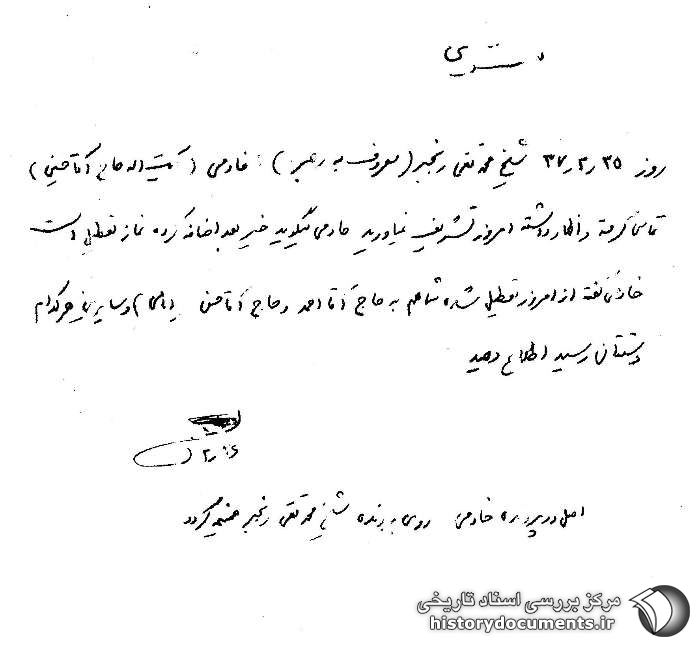 روز ۳۷٫۲٫۲۵ شیخ محمد تقی رنجبر (معروف به رهبر) : خادمی (آیت اله حاج آقا حسین)
تماس گرفته و اظهار داشته امروز تشریف نیاورید خادمی میگوید خیر بعد اضافه کرده نماز تعطیل است
خادمی گفته از امروز تعطیل شده شما هم به حاج آقا احمد و حاج آقا حسن (امامی) و سایرین هر کدام
دستتان رسید اطلاع دهید
اصل در پرونده خادمی روی به پرونده شیخ محمد تقی رنجبر ضمیمه گردد
مرکز بررسی اسناد تاریخی
historydocuments.ir